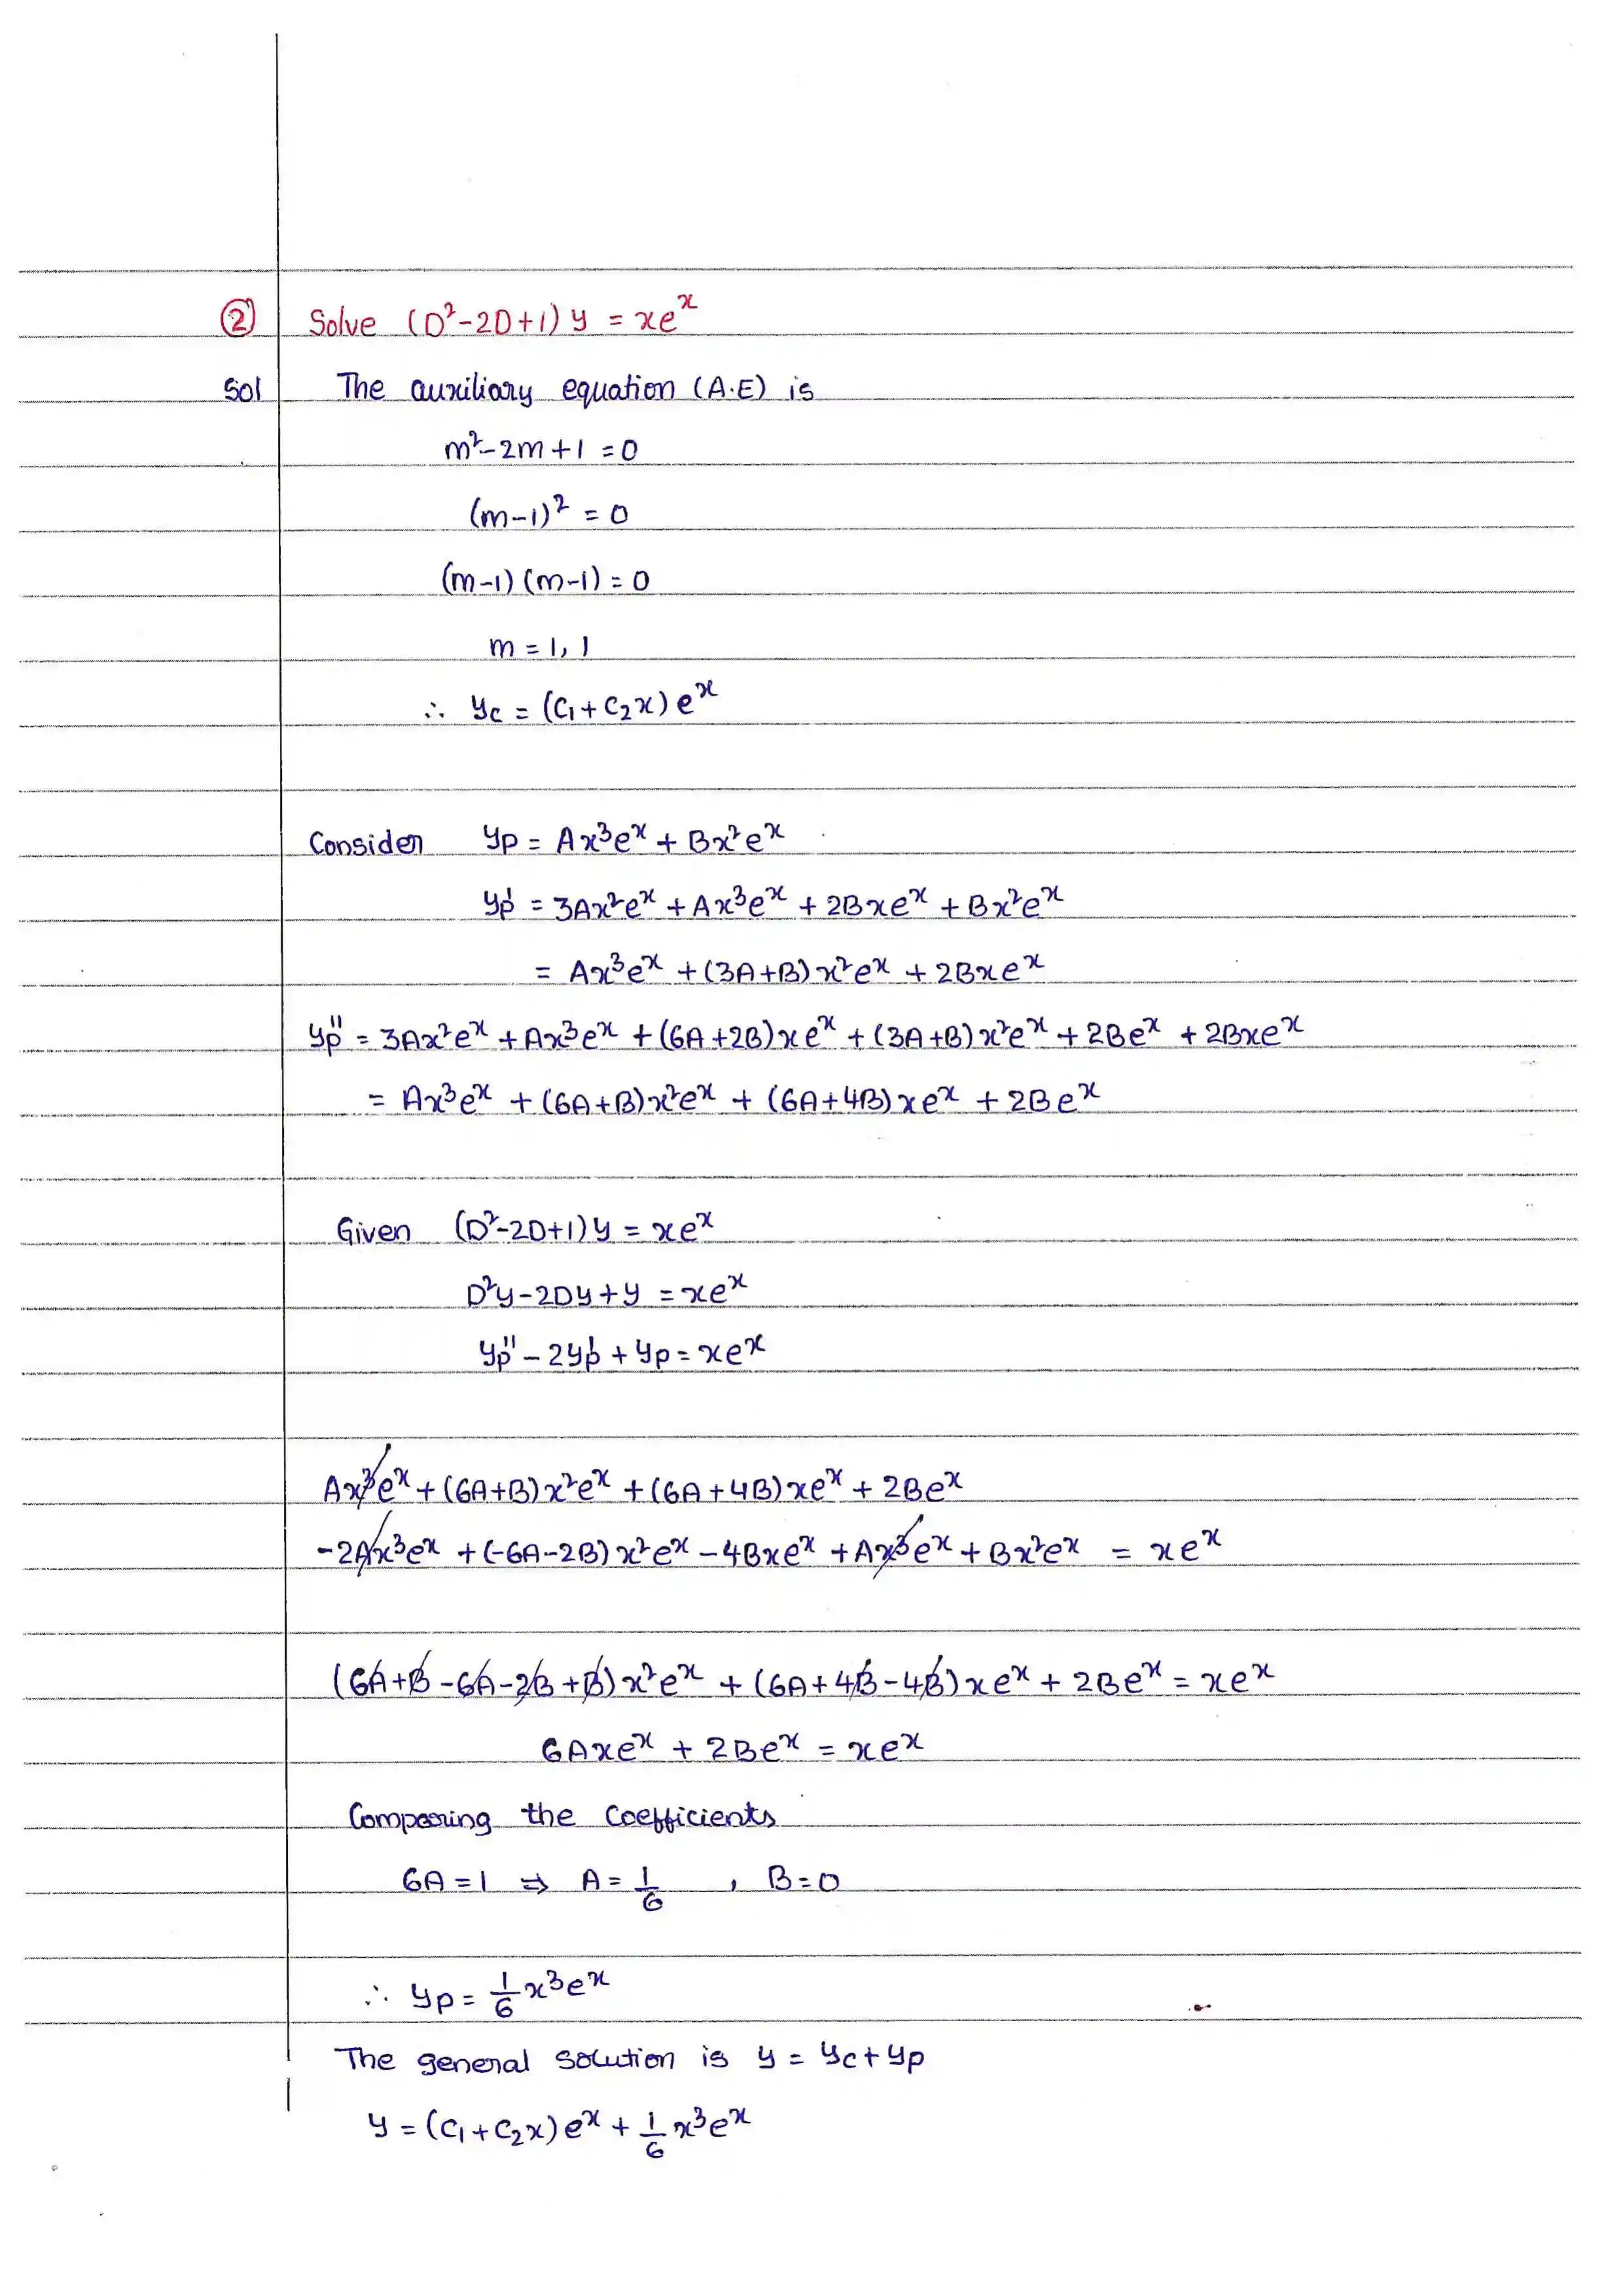 ② Solve (D²-2D+1) y = xeˣ
Sol The auxiliary equation (A.E) is
m²-2m+1 = 0
(m-1)² = 0
(m-1)(m-1) = 0
m = 1, 1
∴ yc = (C₁+C₂x) eˣ
Consider yp = Ax³eˣ + Bx²eˣ
yp' = 3Ax²eˣ + Ax³eˣ + 2Bxeˣ + Bx²eˣ
= Ax³eˣ + (3A+B)x²eˣ + 2Bxeˣ
yp'' = 3Ax²eˣ + Ax³eˣ + (6A+2B)xeˣ + (3A+B)x²eˣ + 2Beˣ + 2Bxeˣ
= Ax³eˣ + (6A+B)x²eˣ + (6A+4B)xeˣ + 2Beˣ
Given (D²-2D+1)y = xeˣ
D²y-2Dy+y = xeˣ
yp'' - 2yp' + yp = xeˣ
Ax³eˣ + (6A+B)x²eˣ + (6A+4B)xeˣ + 2Beˣ
-2Ax³eˣ + (-6A-2B)x²eˣ - 4Bxeˣ + Ax³eˣ + Bx²eˣ = xeˣ
(6A+B-6A-2B+B)x²eˣ + (6A+4B-4B)xeˣ + 2Beˣ = xeˣ
6Axeˣ + 2Beˣ = xeˣ
Comparing the coefficients
6A = 1 ⇒ A = 1/6 , B = 0
∴ yp = 1/6 x³eˣ
The general solution is y = yc + yp
y = (C₁+C₂x)eˣ + 1/6 x³eˣ